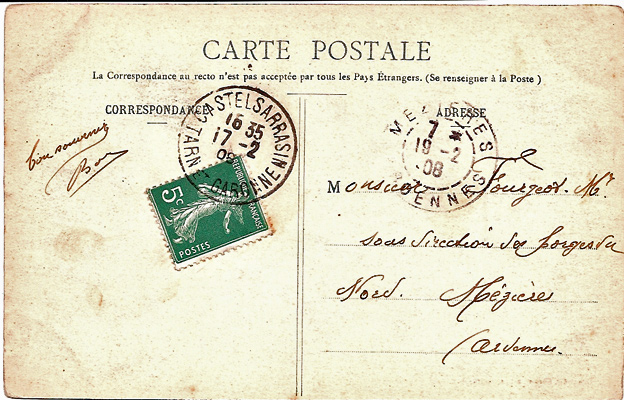 CARTE POSTALE
La Correspondance au recto n'est pas acceptée par tous les Pays Étrangers. (Se renseigner à la Poste)
CORRESPONDANCE
ADRESSE
CASTELSARRASIN
16 35
17 -2
08
TARN-ET-GARONNE
7
19 -2
08
bon souvenir
5c
RÉPUBLIQUE FRANÇAISE
POSTES
Monsieur Fourgeot. Mr
sous direction des forges du
Nord. Mézières
Ardennes